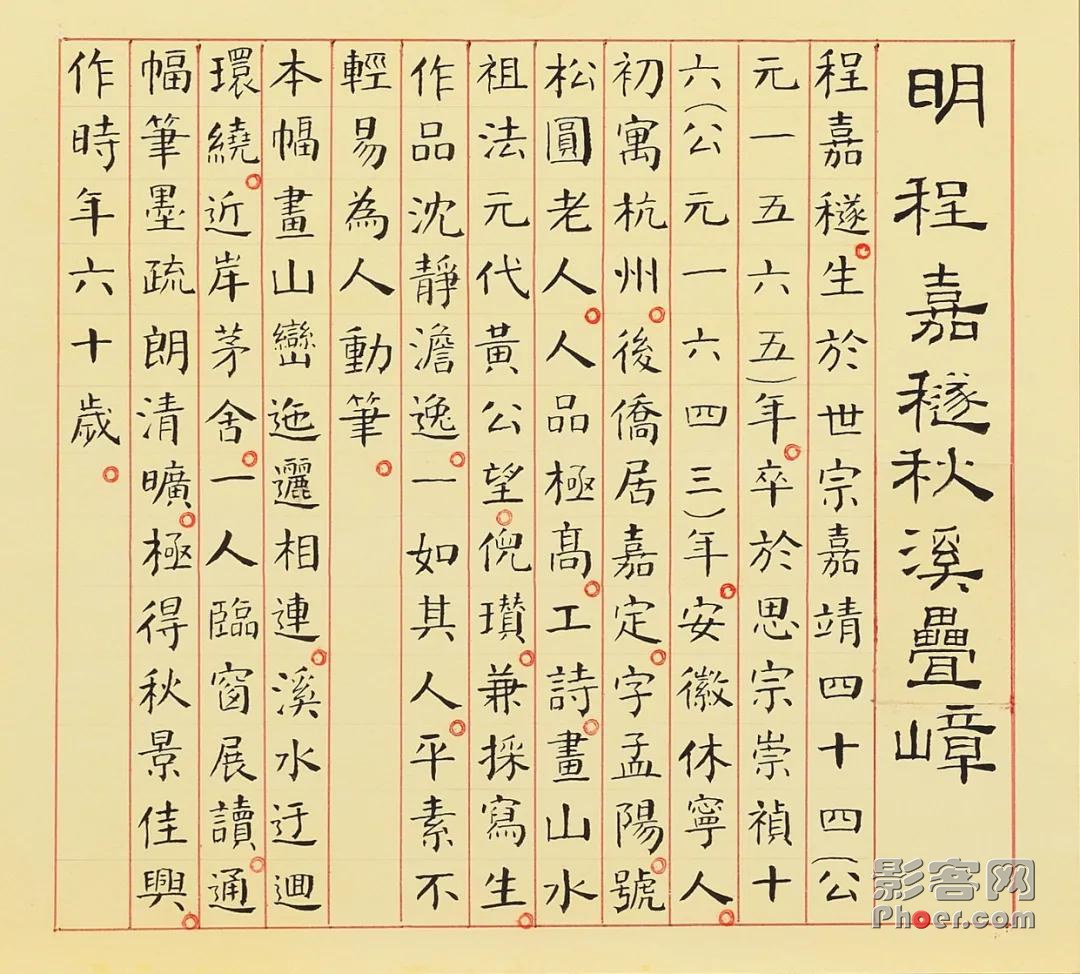 明程嘉燧秋溪疊嶂
程嘉燧生於世宗嘉靖四十四(公
元一五六五)年卒於思宗崇禎十
六(公元一六四三)年安徽休寧人
初寓杭州後僑居嘉定字孟陽號
松圓老人人品極高工詩畫山水
祖法元代黃公望倪瓚兼採寫生
作品沈靜澹逸一如其人平素不
輕易為人動筆
本幅畫山巒迤邐相連溪水迂迴
環繞近岸茅舍一人臨窗展讀通
幅筆墨疏朗清曠極得秋景佳興
作時年六十歲
影客网
Phoer.com